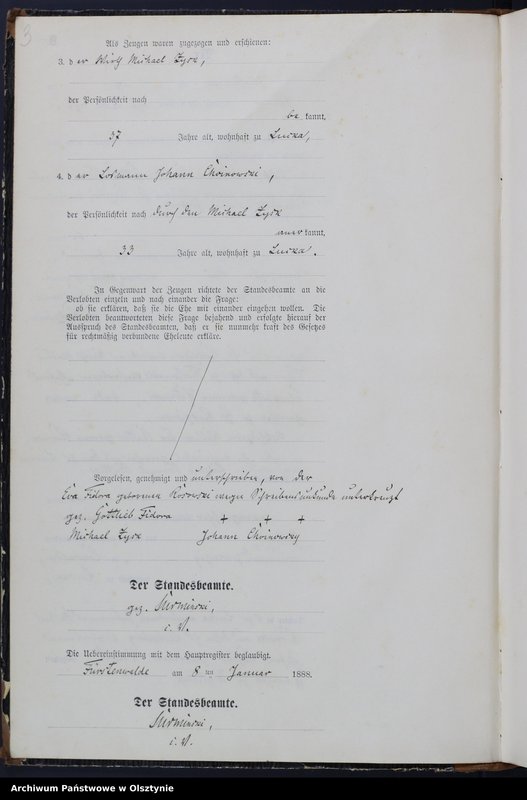 3
Als Zeugen waren zugezogen und erschienen:
3. der Wirth Michael Zysk,
der Persönlichkeit nach
be kannt,
37 Jahre alt, wohnhaft zu Lucka,
4. der Losmann Johann Choinowski,
der Persönlichkeit nach durch den Michael Zysk
aner kannt,
33 Jahre alt, wohnhaft zu Lucka.
In Gegenwart der Zeugen richtete der Standesbeamte an die
Verlobten einzeln und nach einander die Frage:
ob sie erklären, daß sie die Ehe mit einander eingehen wollen. Die
Verlobten beantworteten diese Frage bejahend und erfolgte hierauf der
Ausspruch des Standesbeamten, daß er sie nunmehr kraft des Gesetzes
für rechtmäßig verbundene Eheleute erkläre.
Vorgelesen, genehmigt und unterschrieben, von der
Eva Fidora geborenen Kosowski wegen Schreibensunkunde unterkreuzt
gez. Gottlieb Fidora + + +
Michael Zysk Johann Choinowsky
Der Standesbeamte.
gez. Surminski,
i. V.
Die Uebereinstimmung mit dem Hauptregister beglaubigt.
Fürstenwalde am 8 ten Januar 1888.
Der Standesbeamte.
Surminski,
i. V.
Archiwum Państwowe w Olsztynie